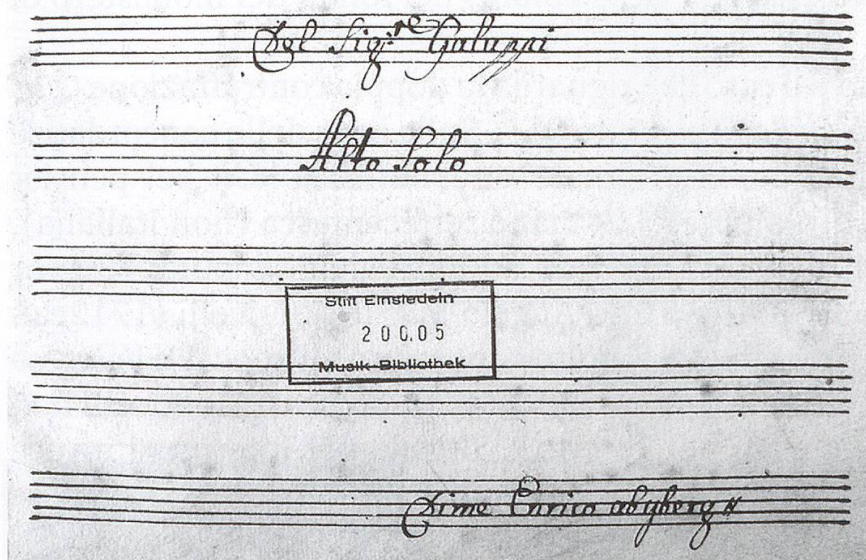 Del Sig:re Galuppi
Alto Solo
Stift Einsiedeln
200.05
Musik-Bibliothek
Enrico abyberg